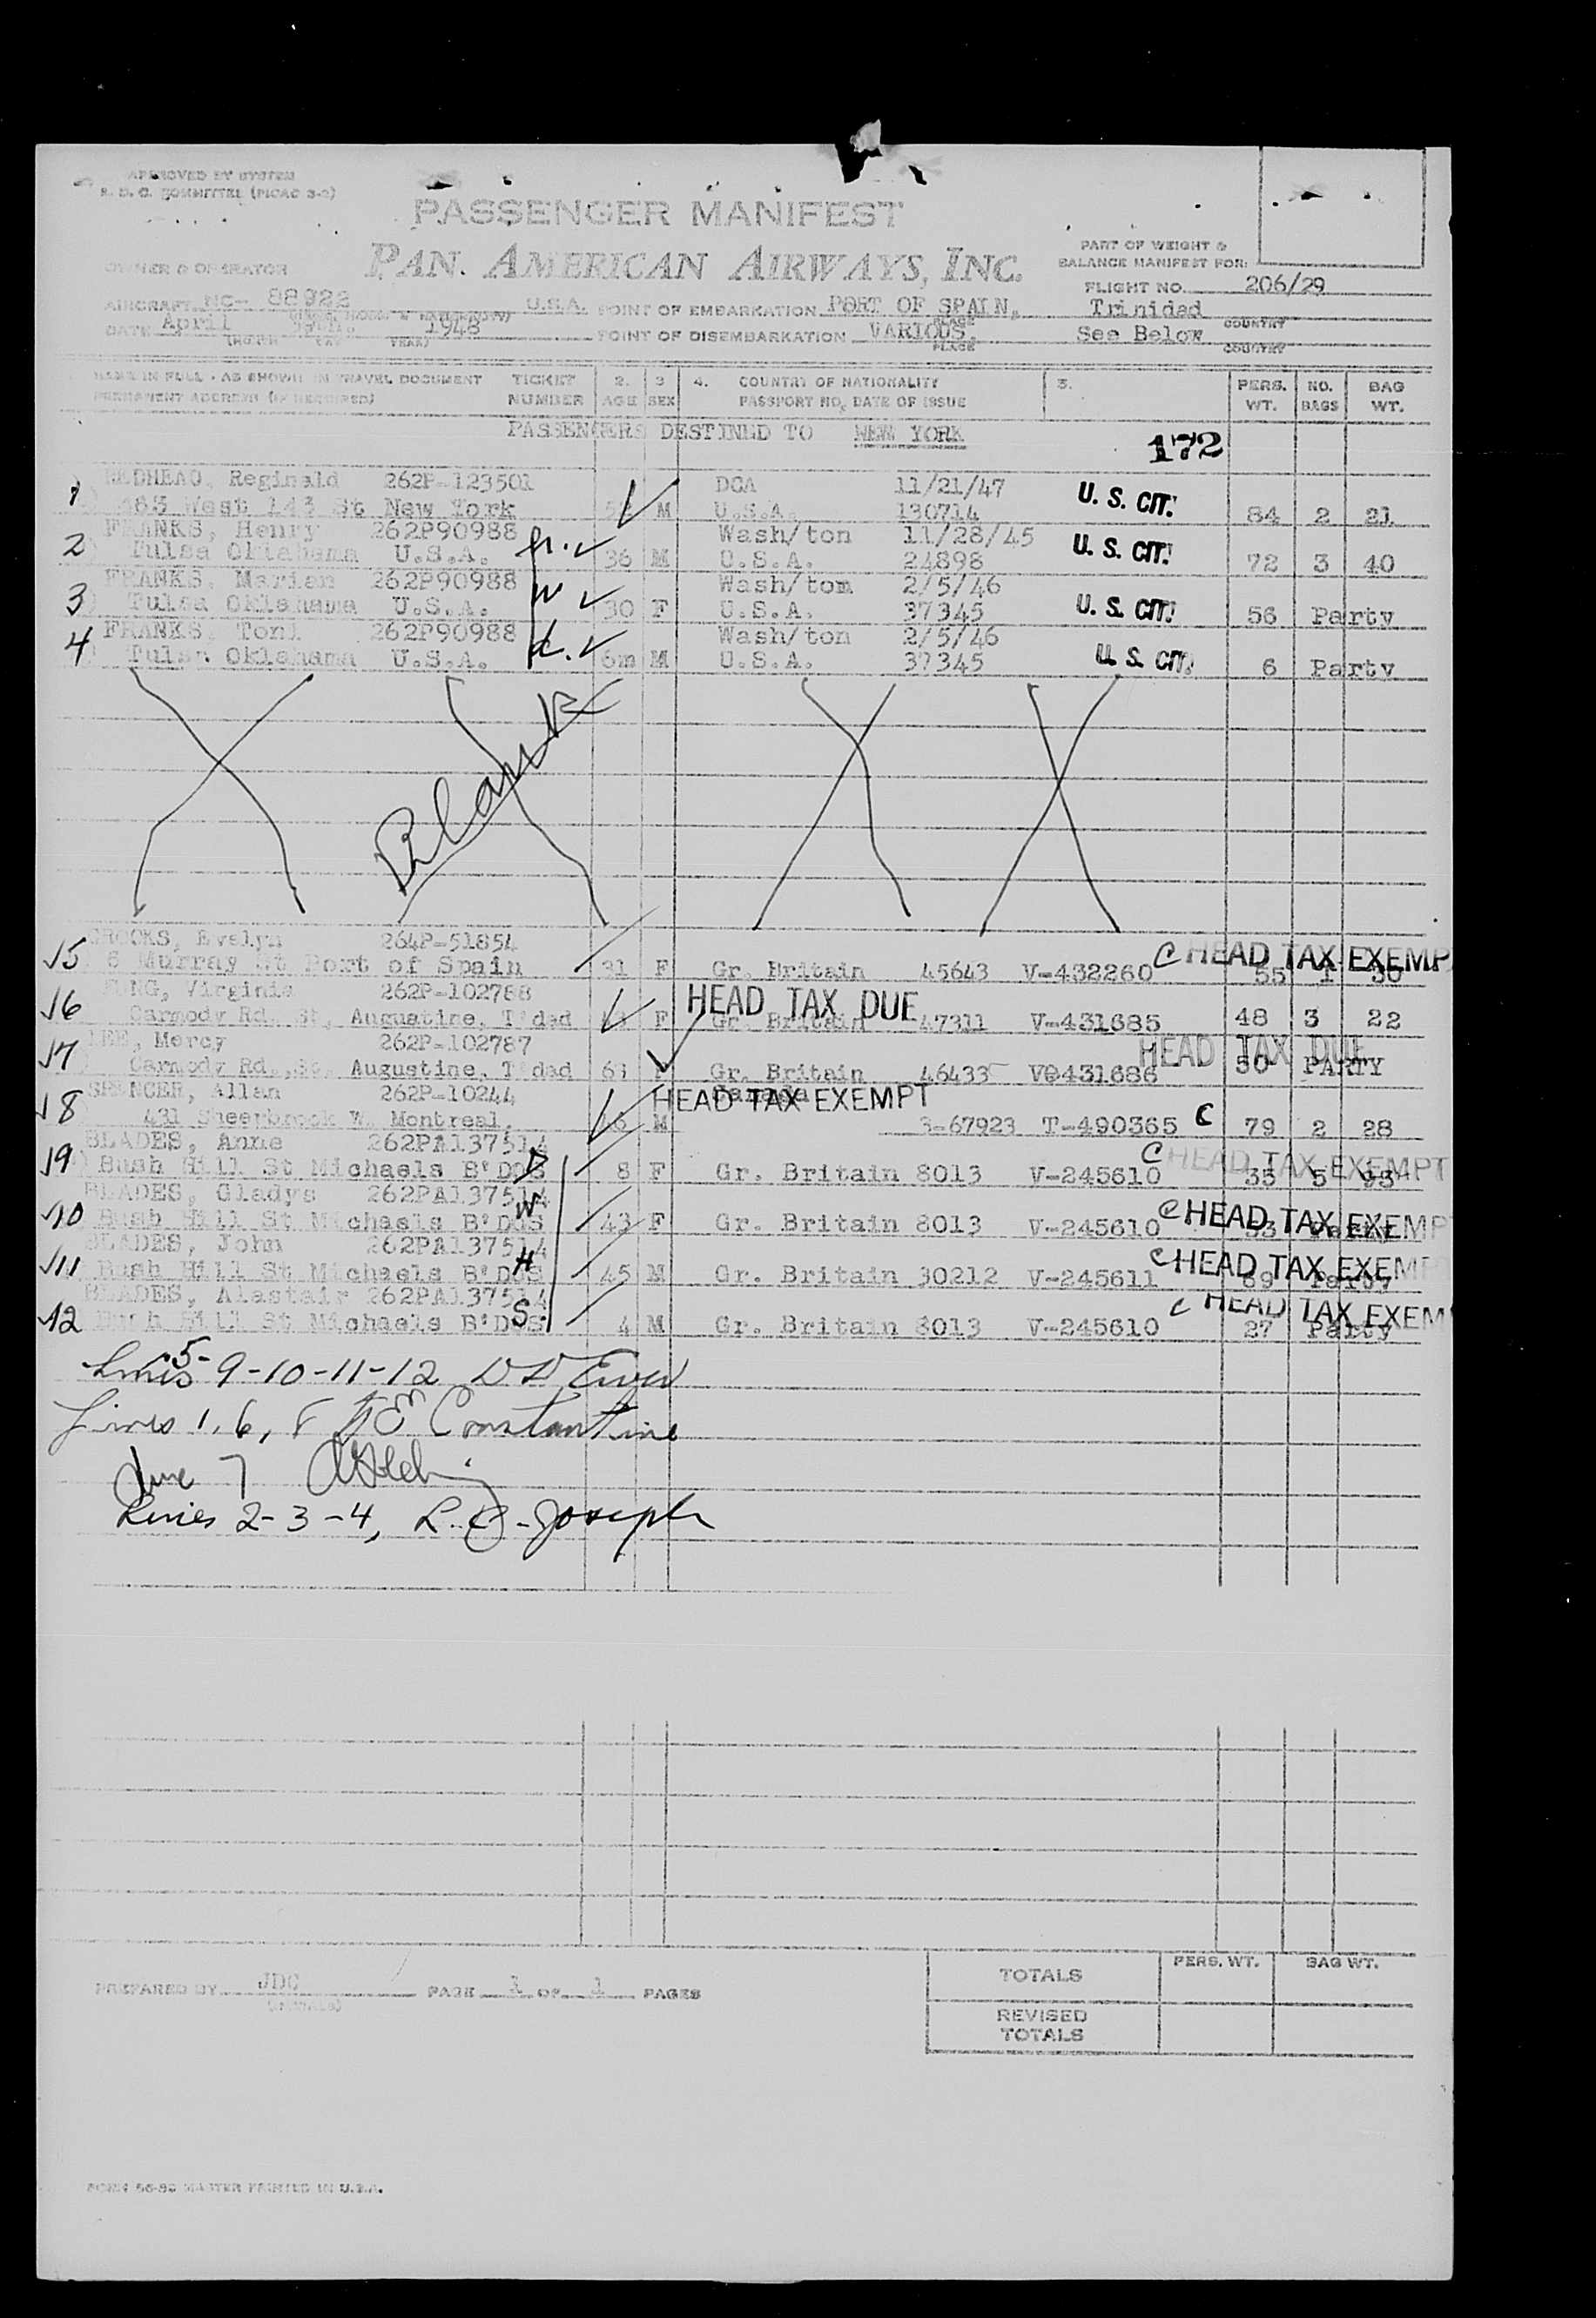 APPROVED BY SYSTEM
R. D. C. COMMITTEE (PICAO 3-2)
PASSENGER MANIFEST
PAN AMERICAN AIRWAYS, INC.
PART OF WEIGHT &
BALANCE MANIFEST FOR:
OWNER & OPERATOR
FLIGHT NO. 206/29
AIRCRAFT NC- 88922 U.S.A. POINT OF EMBARKATION PORT OF SPAIN, Trinidad
PLACE COUNTRY
DATE April 1948 POINT OF DISEMBARKATION VARIOUS, See Below
(MONTH DAY YEAR) PLACE COUNTRY
NAME IN FULL - AS SHOWN IN TRAVEL DOCUMENT TICKET 2. 3 4. COUNTRY OF NATIONALITY 5. PERS. NO. BAG
PERMANENT ADDRESS (IF REQUIRED) NUMBER AGE SEX PASSPORT NO, DATE OF ISSUE WT. BAGS WT.
PASSENGERS DESTINED TO NEW YORK
172
REDHEAD, Reginald 262P-123501 DCA 11/21/47
1 West 143 St New York M U.S.A. 130714 U. S. CIT. 84 2 21
FRANKS, Henry 262P90988 Wash/ton 11/28/45
2 Tulsa Oklahama U.S.A. H. 36 M U.S.A. 24898 U. S. CIT. 72 3 40
FRANKS, Marian 262P90988 Wash/tom 2/5/46
3 Tulsa Oklahama U.S.A. W 30 F U.S.A. 37345 U. S. CIT. 56 Party
FRANKS, Toni 262P90988 Wash/ton 2/5/46
4 Tulsa Oklahama U.S.A. 6m M U.S.A. 37345 U. S. CIT. 6 Party
Blank
CROOKS, Evelyn 264P-51854
5 6 Murray St Port of Spain 31 F Gr. Britain 45643 V-432260 C HEAD TAX EXEMP 55 1 30
Virginia 262P-102788
6 Carmody Rd. St, Augustine, T'dad F HEAD TAX DUE Gr. Britain 47311 V-431685 48 3 22
LEE, Mercy 262P-102787
7 Carmody Rd.,St. Augustine, T'dad 63 F Gr. Britain 46433 V@431686 HEAD TAX DUE 50 PARTY
SPENCER, Allan 262P-10244 HEAD TAX EXEMPT Canada
8 431 Sheerbrook W. Montreal, M 3-67923 T-490365 C 79 2 28
BLADES, Anne 262PA137514
9 Bush Hill St Michaels B'DOS D 8 F Gr. Britain 8013 V-245610 C HEAD TAX EXEMPT 35 5 93
BLADES, Gladys 262PA137514
10 Bush Hill St Michaels B'DOS W 43 F Gr. Britain 8013 V-245610 C HEAD TAX EXEMP 53 Party
BLADES, John 262PA137514
11 Bush Hill St Michaels B'DOS H 45 M Gr. Britain 30212 V-245611 C HEAD TAX EXEM 89 Party
BLADES, Alastair 262PA137514
12 Bush Hill St Michaels B'DOS S. 4 M Gr. Britain 8013 V-245610 C HEAD TAX EXEM 27 Party
Lines 5-9-10-11-12
Lines 1, 6, 8 Constantine
Line 7
Lines 2-3-4, L. Joseph
TOTALS PERS. WT. BAG WT.
PREPARED BY JDC PAGE 1 OF 1 PAGES
(INITIALS)
REVISED
TOTALS
FORM 66-82 MASTER PRINTED IN U.S.A.